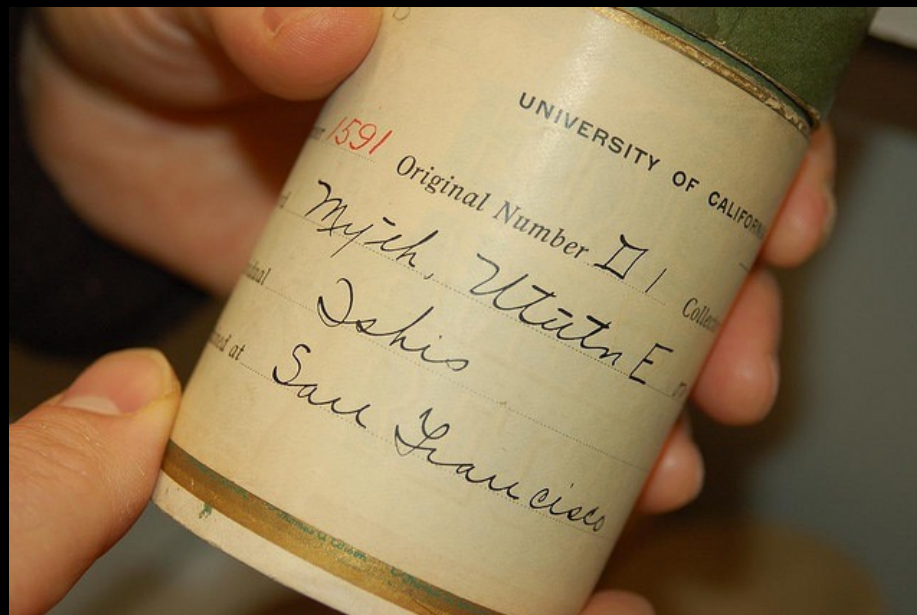 UNIVERSITY OF CALIFORN
1591 Original Number □ 1 Collect
Myth, Utūtn E
Ishis
ned at San Francisco